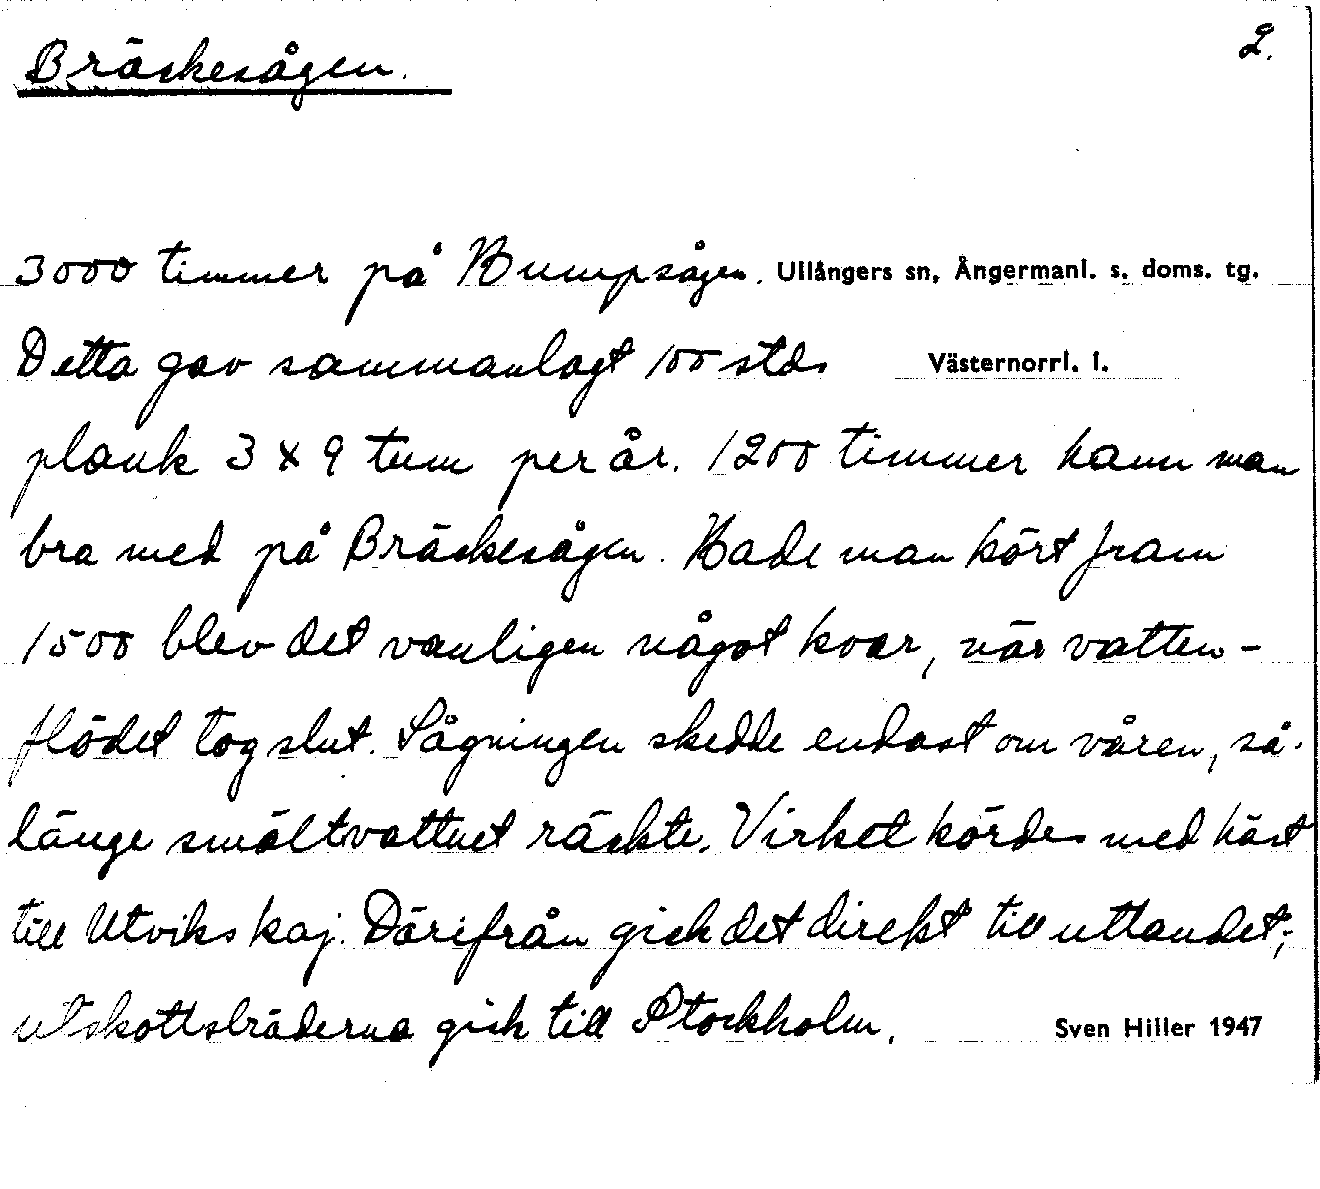 Bräckesågen. 2.
3000 timmer på Humpsågen. Ullångers sn, Ångermanl. s. doms. tg.
Detta gav sammanlagt 100 stds Västernorrl. l.
plank 3 x 9 tum per år. 1200 timmer hann man
bra med på Bräckesågen. Hade man kört fram
1500 blev det vanligen något kvar, när vatten-
flödet tog slut. Sågningen skedde endast om våren, så-
länge smältvattnet räckte. Virket kördes med häst
till Utviks kaj. Därifrån gick det direkt till utlandet;
utskottsbräderna gick till Stockholm. Sven Hiller 1947